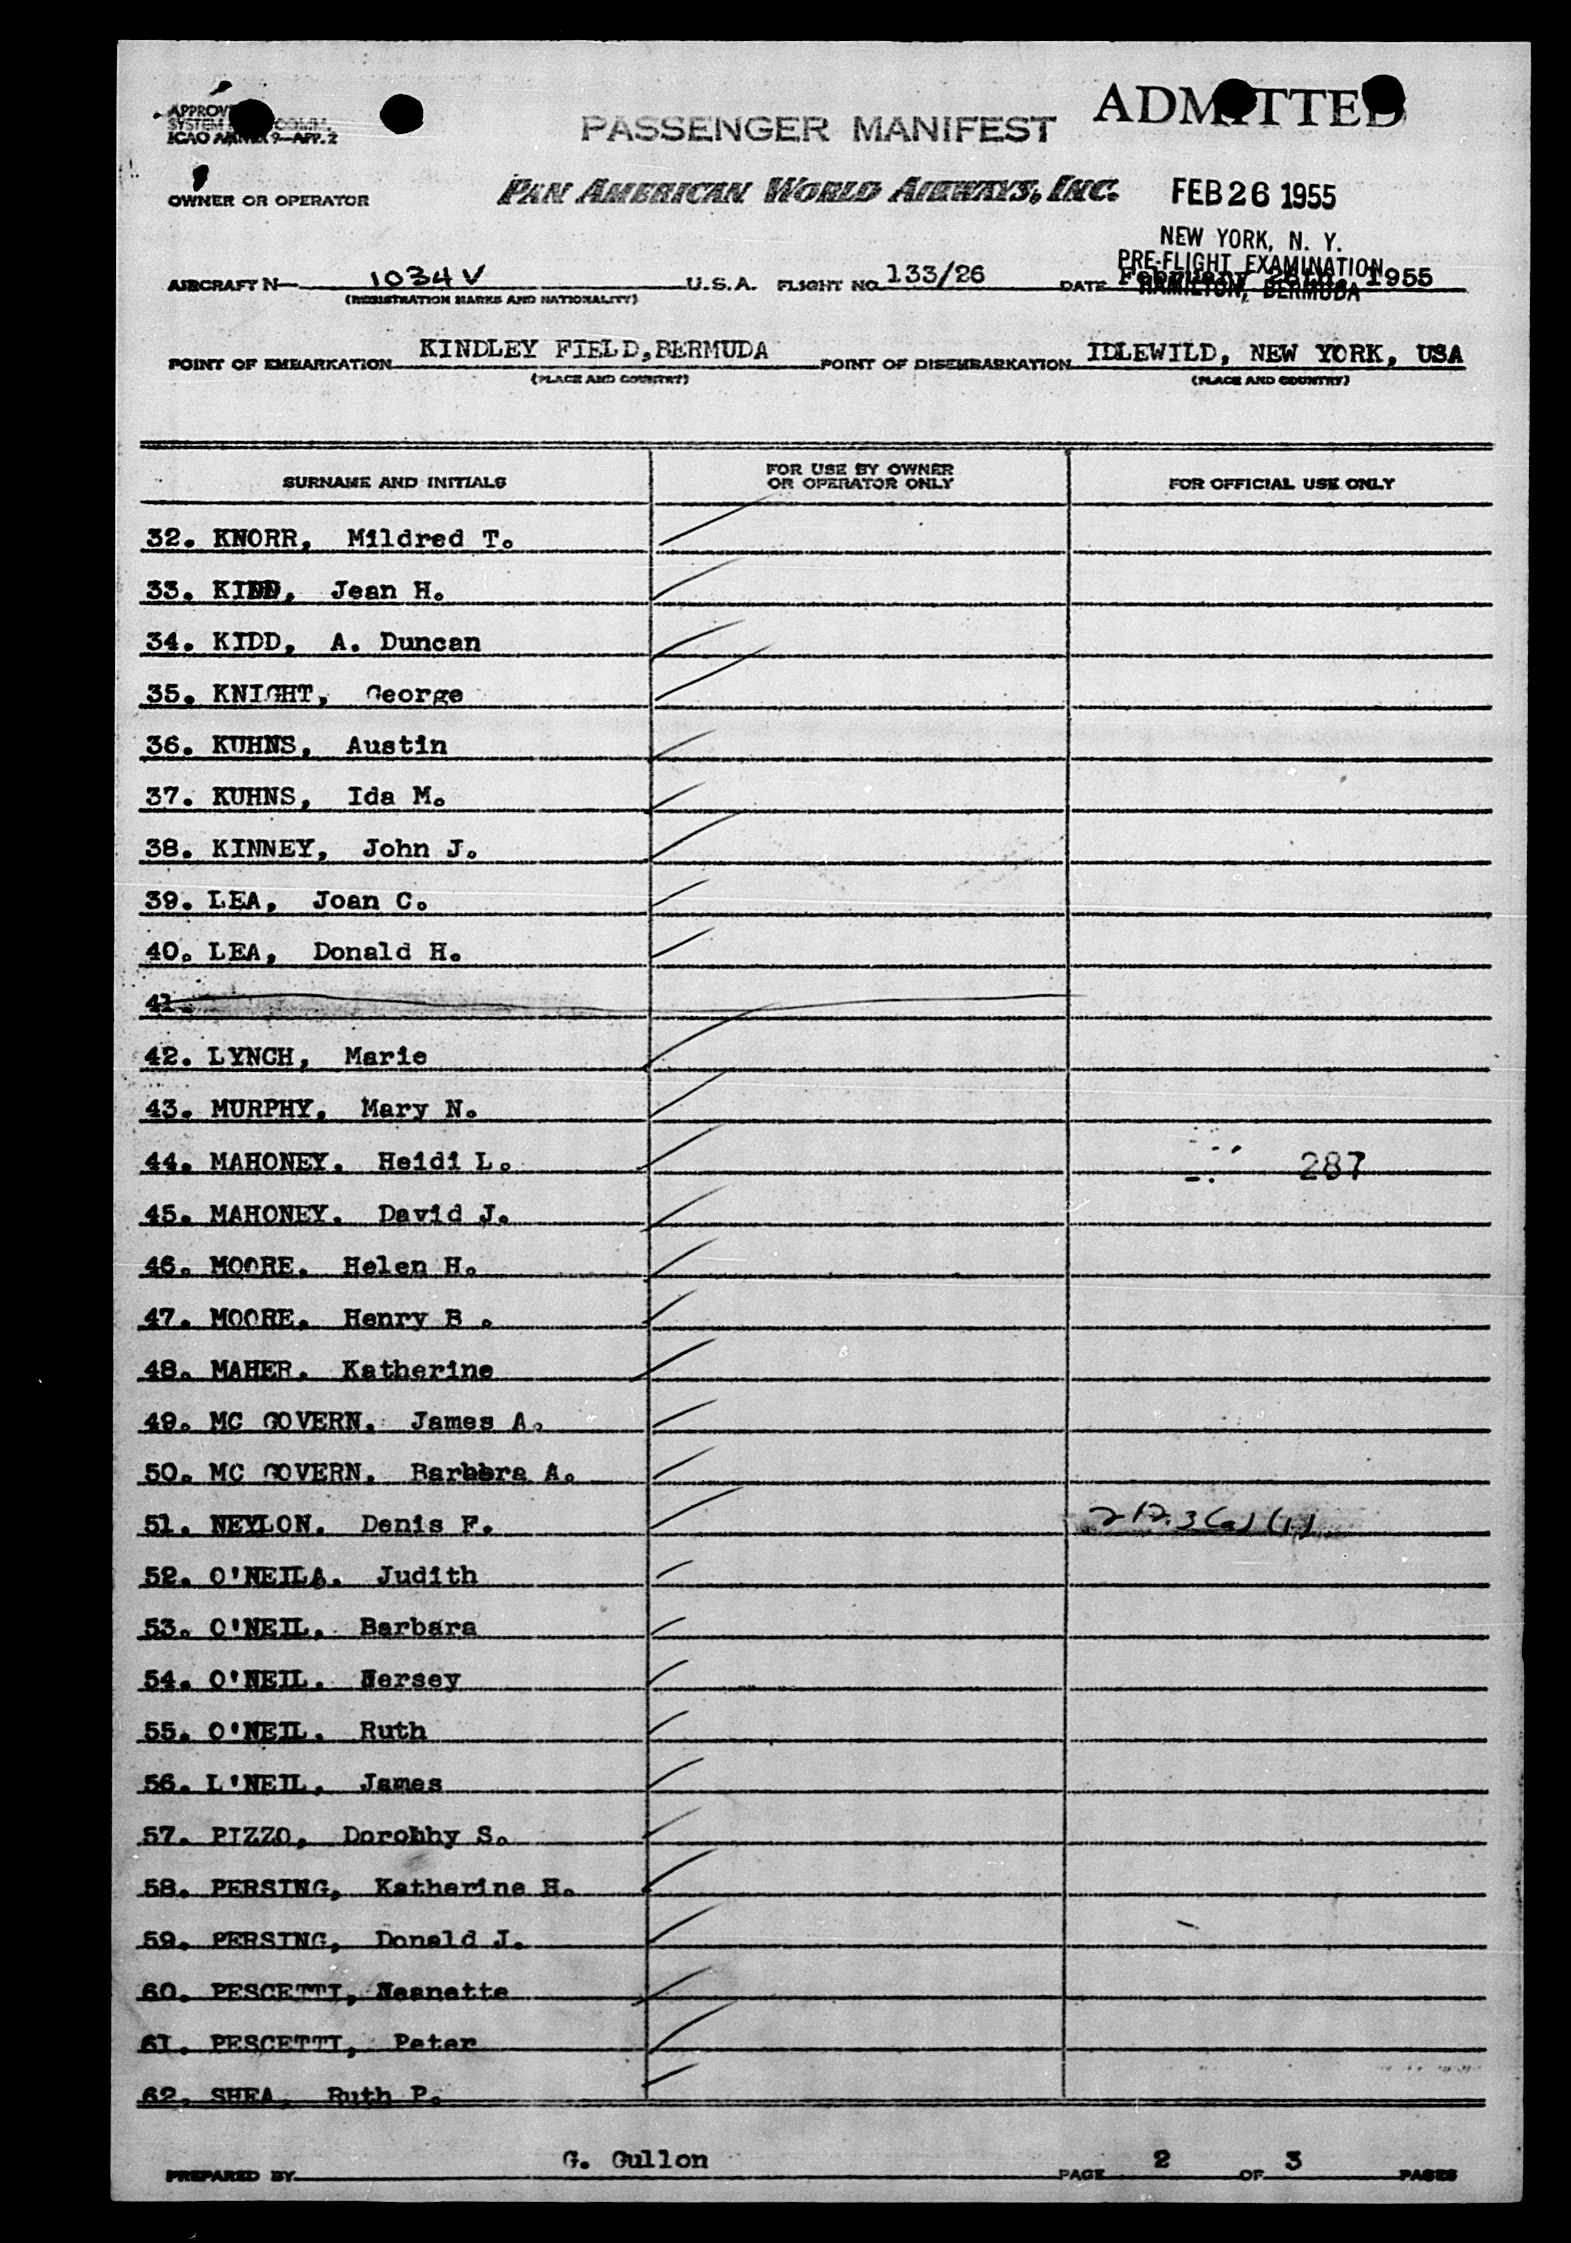 ADMITTED
APPROVE
SYSTEM COMM.
ICAO ANNEX 9—APP. 2
PASSENGER MANIFEST
OWNER OR OPERATOR
PAN AMERICAN WORLD AIRWAYS, INC.
FEB 26 1955
NEW YORK, N. Y.
PRE-FLIGHT EXAMINATION
HAMILTON, BERMUDA
AIRCRAFT N 1034V U.S.A. FLIGHT NO. 133/26 DATE February 26th, 1955
(REGISTRATION MARKS AND NATIONALITY)
POINT OF EMBARKATION KINDLEY FIELD, BERMUDA POINT OF DISEMBARKATION IDLEWILD, NEW YORK, USA
(PLACE AND COUNTRY) (PLACE AND COUNTRY)
SURNAME AND INITIALS FOR USE BY OWNER OR OPERATOR ONLY FOR OFFICIAL USE ONLY
32. KNORR, Mildred T.
33. KIDD, Jean H.
34. KIDD, A. Duncan
35. KNIGHT, George
36. KUHNS, Austin
37. KUHNS, Ida M.
38. KINNEY, John J.
39. LEA, Joan C.
40. LEA, Donald H.
41.
42. LYNCH, Marie
43. MURPHY, Mary N.
44. MAHONEY. Heidi L. 287
45. MAHONEY. David J.
46. MOORE. Helen H.
47. MOORE. Henry B .
48. MAHER. Katherine
49. MC GOVERN. James A.
50. MC GOVERN. Barbbra A.
51. NEYLON. Denis F. 212.3(a)(1)
52. O'NEILA. Judith
53. O'NEIL. Barbara
54. O'NEIL. Nersey
55. O'NEIL. Ruth
56. L'NEIL, James
57. PIZZO, Dorohhy S.
58. PERSING, Katherine H.
59. PERSING, Donald J.
60. PESCETTI, Neanette
61. PESCETTI, Peter
62. SHEA, Ruth P.
PREPARED BY G. Gullon PAGE 2 OF 3 PAGES